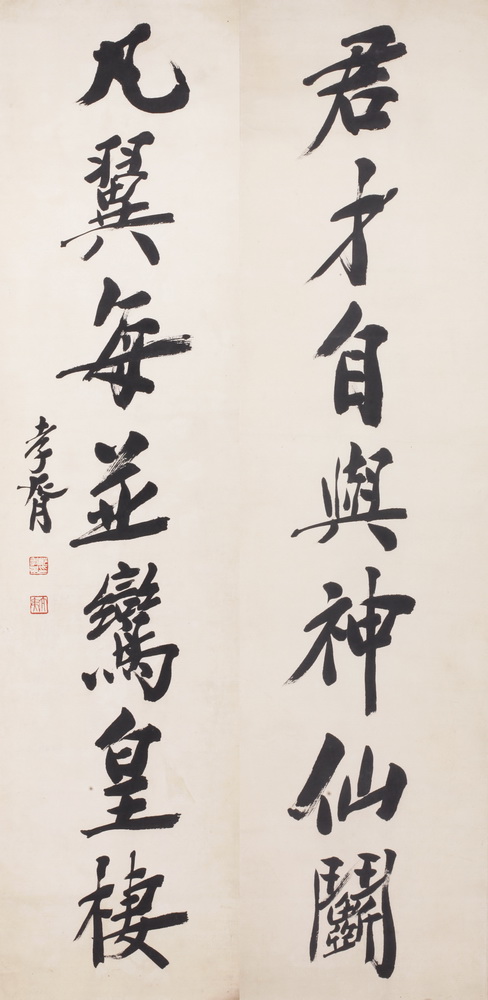 君才自與神仙鬬
凡翼每並鸞皇棲
孝胥